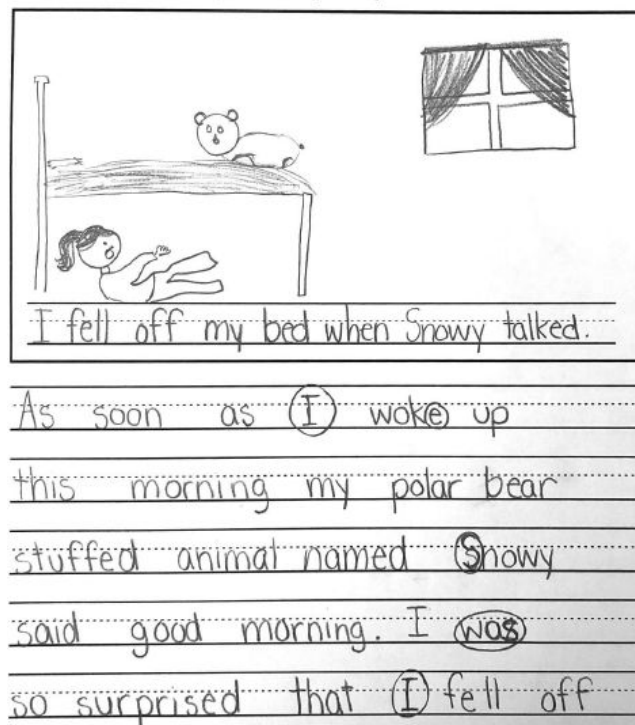 I fell off my bed when Snowy talked.
As soon as I woke up
this morning my polar bear
stuffed animal named Snowy
said good morning. I was
so surprised that I fell off